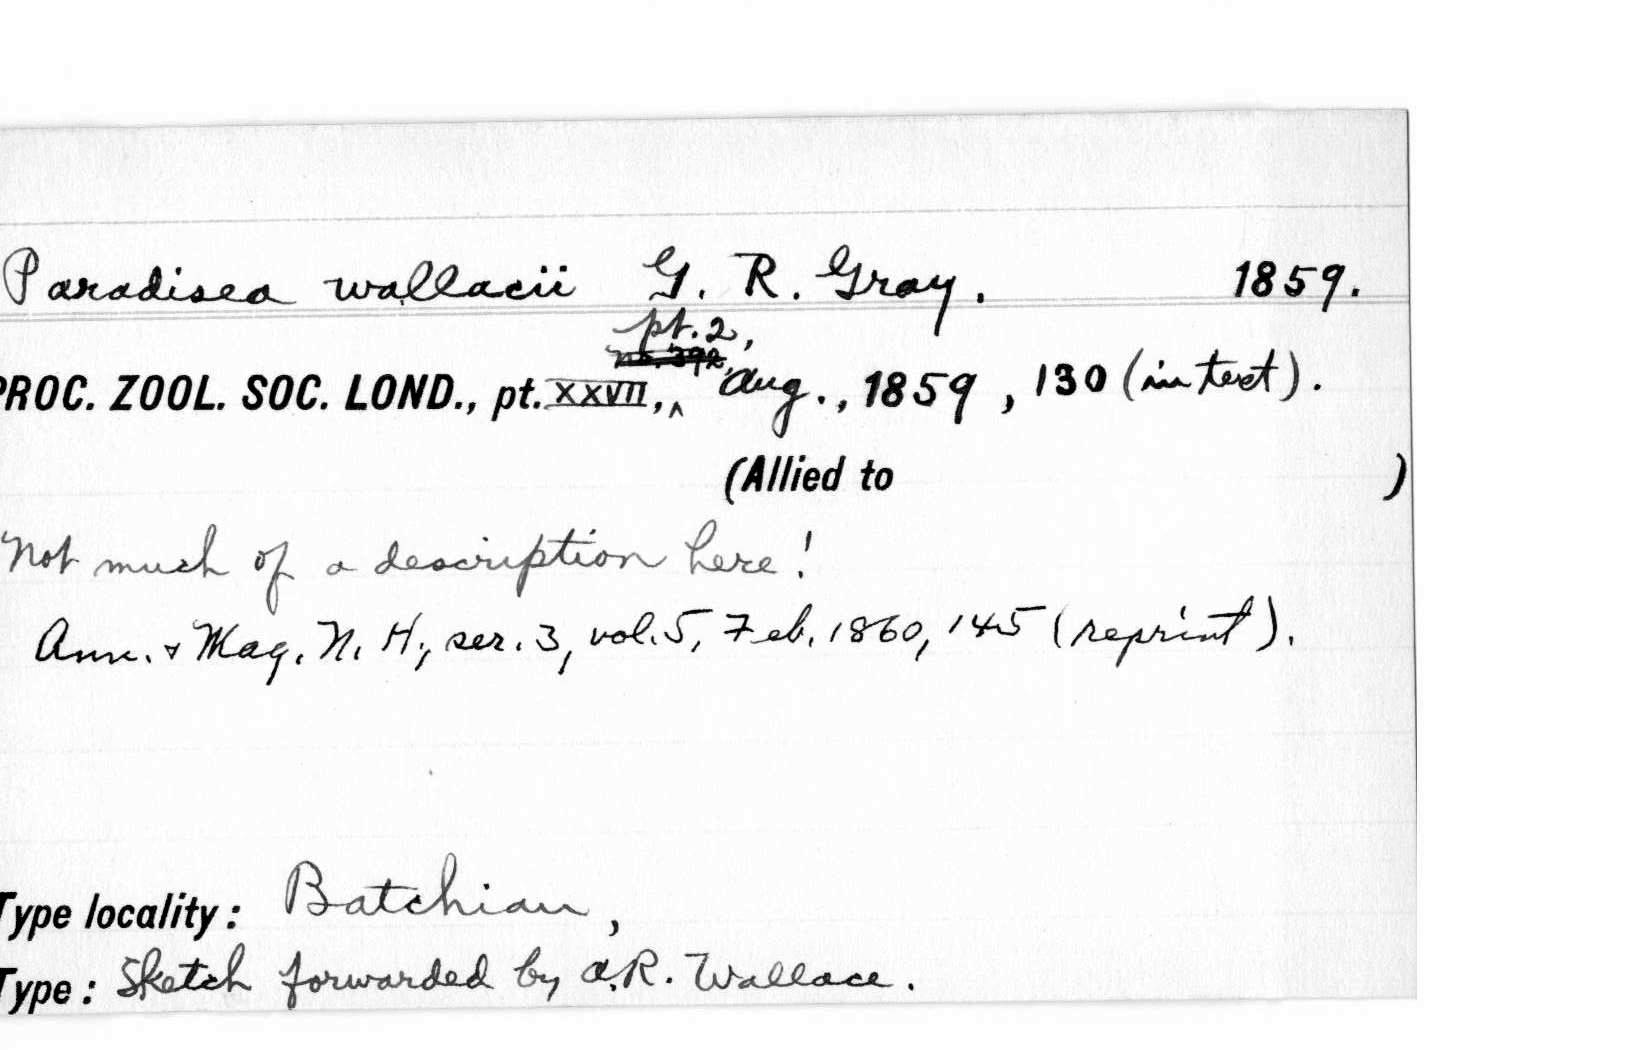 Paradisea wallacii G. R. Gray. 1859.
pt. 2,
no. 392,
PROC. ZOOL. SOC. LOND., pt. XXVII, ^ Aug., 1859, 130 (in text).
(Allied to )
Not much of a description here!
Ann. & Mag. N. H., ser. 3, vol. 5, Feb. 1860, 145 (reprint).
Type locality: Batchian,
Type: Sketch forwarded by A.R. Wallace.